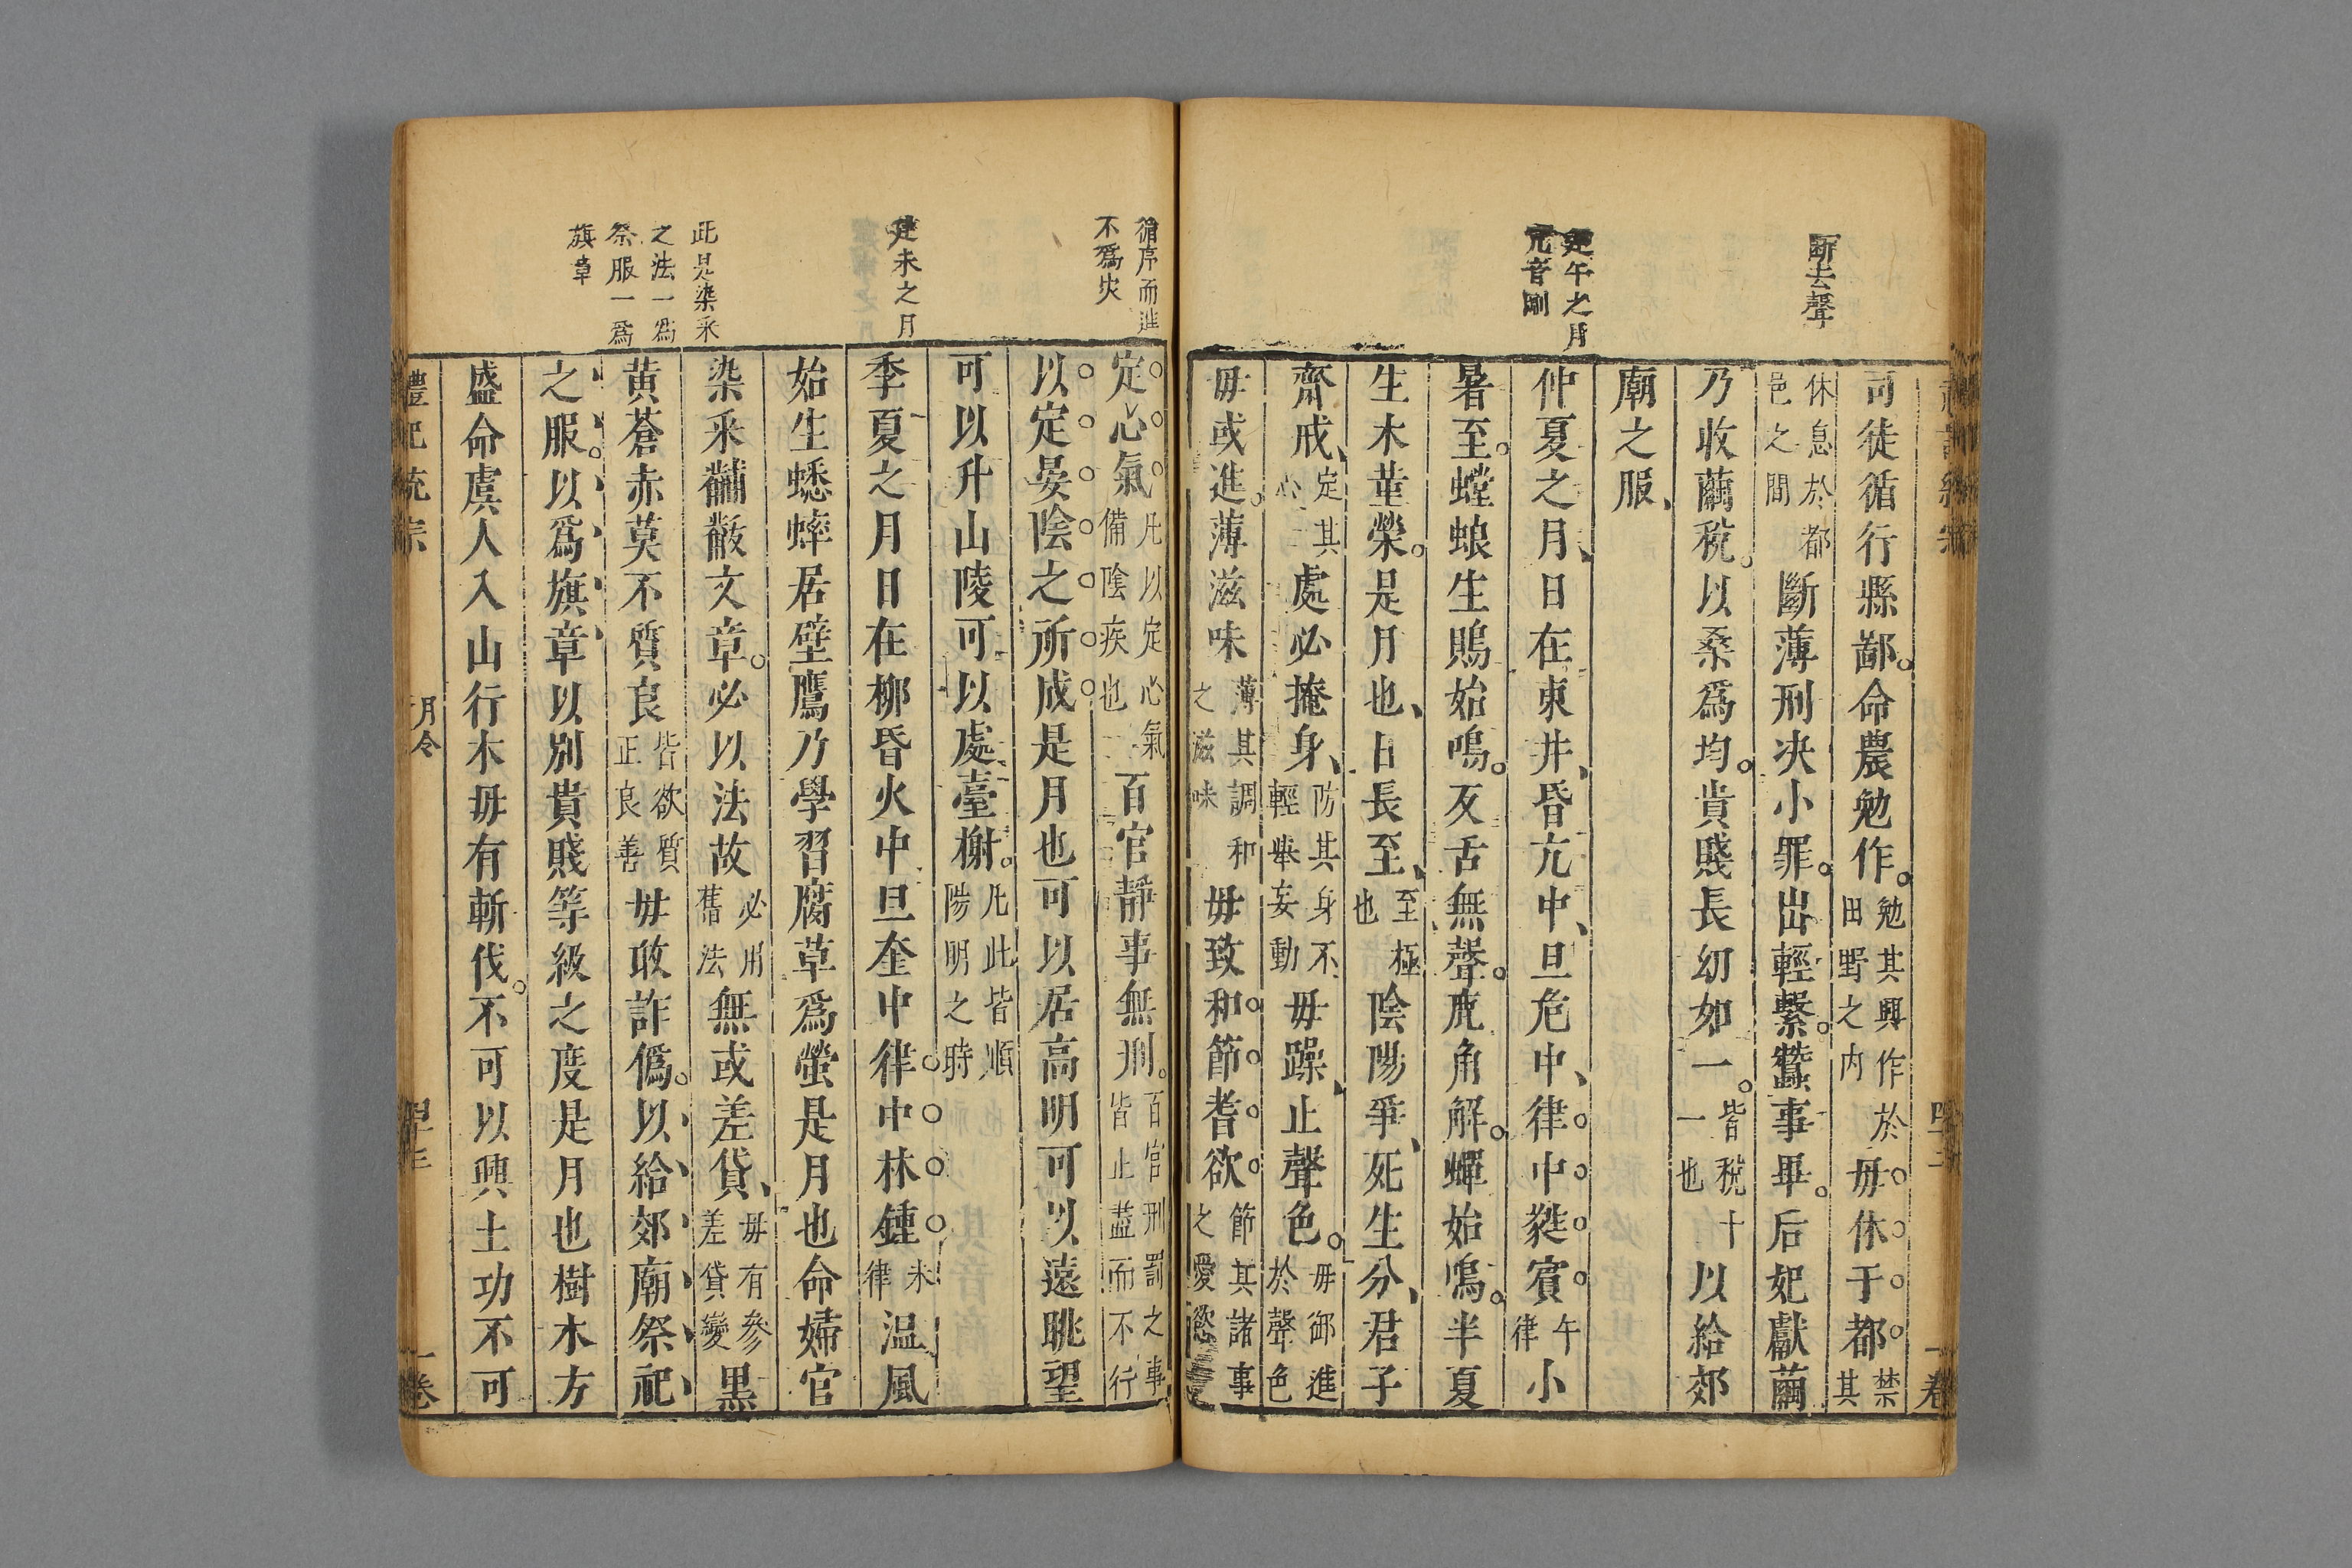 斷去聲
建午之月
亢音剛
司徒循行縣鄙命農勉作勉其興作於田野之内毋休于都禁其
休息於都邑之間斷薄刑决小罪出輕繫蠶事畢后妃獻繭
乃收繭稅以桑爲均貴賤長幼如一皆稅十一也以給郊
廟之服
仲夏之月日在東井昏亢中旦危中律中蕤賓午律小
暑至螳蜋生鵙始鳴反舌無聲鹿角解蟬始鳴半夏
生木菫榮是月也日長至至極也陰陽爭死生分君子
齋戒定其心處必掩身防其身不輕舉妄動毋躁止聲色毋御進於聲色
毋或進薄滋味薄其調和之滋味毋致和節耆欲節其諸事之愛慾
循序而進
不爲災
建未之月
此見染采
之法一爲
祭服一爲
旗章
定心氣凡以定心氣備陰疾也百官靜事無刑百官刑罰之事皆止葢而不行
以定晏陰之所成是月也可以居高明可以遠眺望
可以升山陵可以處臺榭凡此皆順陽明之時
季夏之月日在柳昏火中旦奎中律中林鍾未律温風
始生蟋蟀居壁鷹乃學習腐草爲螢是月也命婦官
染采黼黻文章必以法故必用舊法無或差貸毋有參差貸變黑
黄蒼赤莫不質良皆欲質正良善毋敢詐僞以給郊廟祭祀
之服以爲旗章以別貴賤等級之度是月也樹木方
盛命虞人入山行木毋有斬伐不可以興土功不可
禮記統宗 月令 四十三 一卷